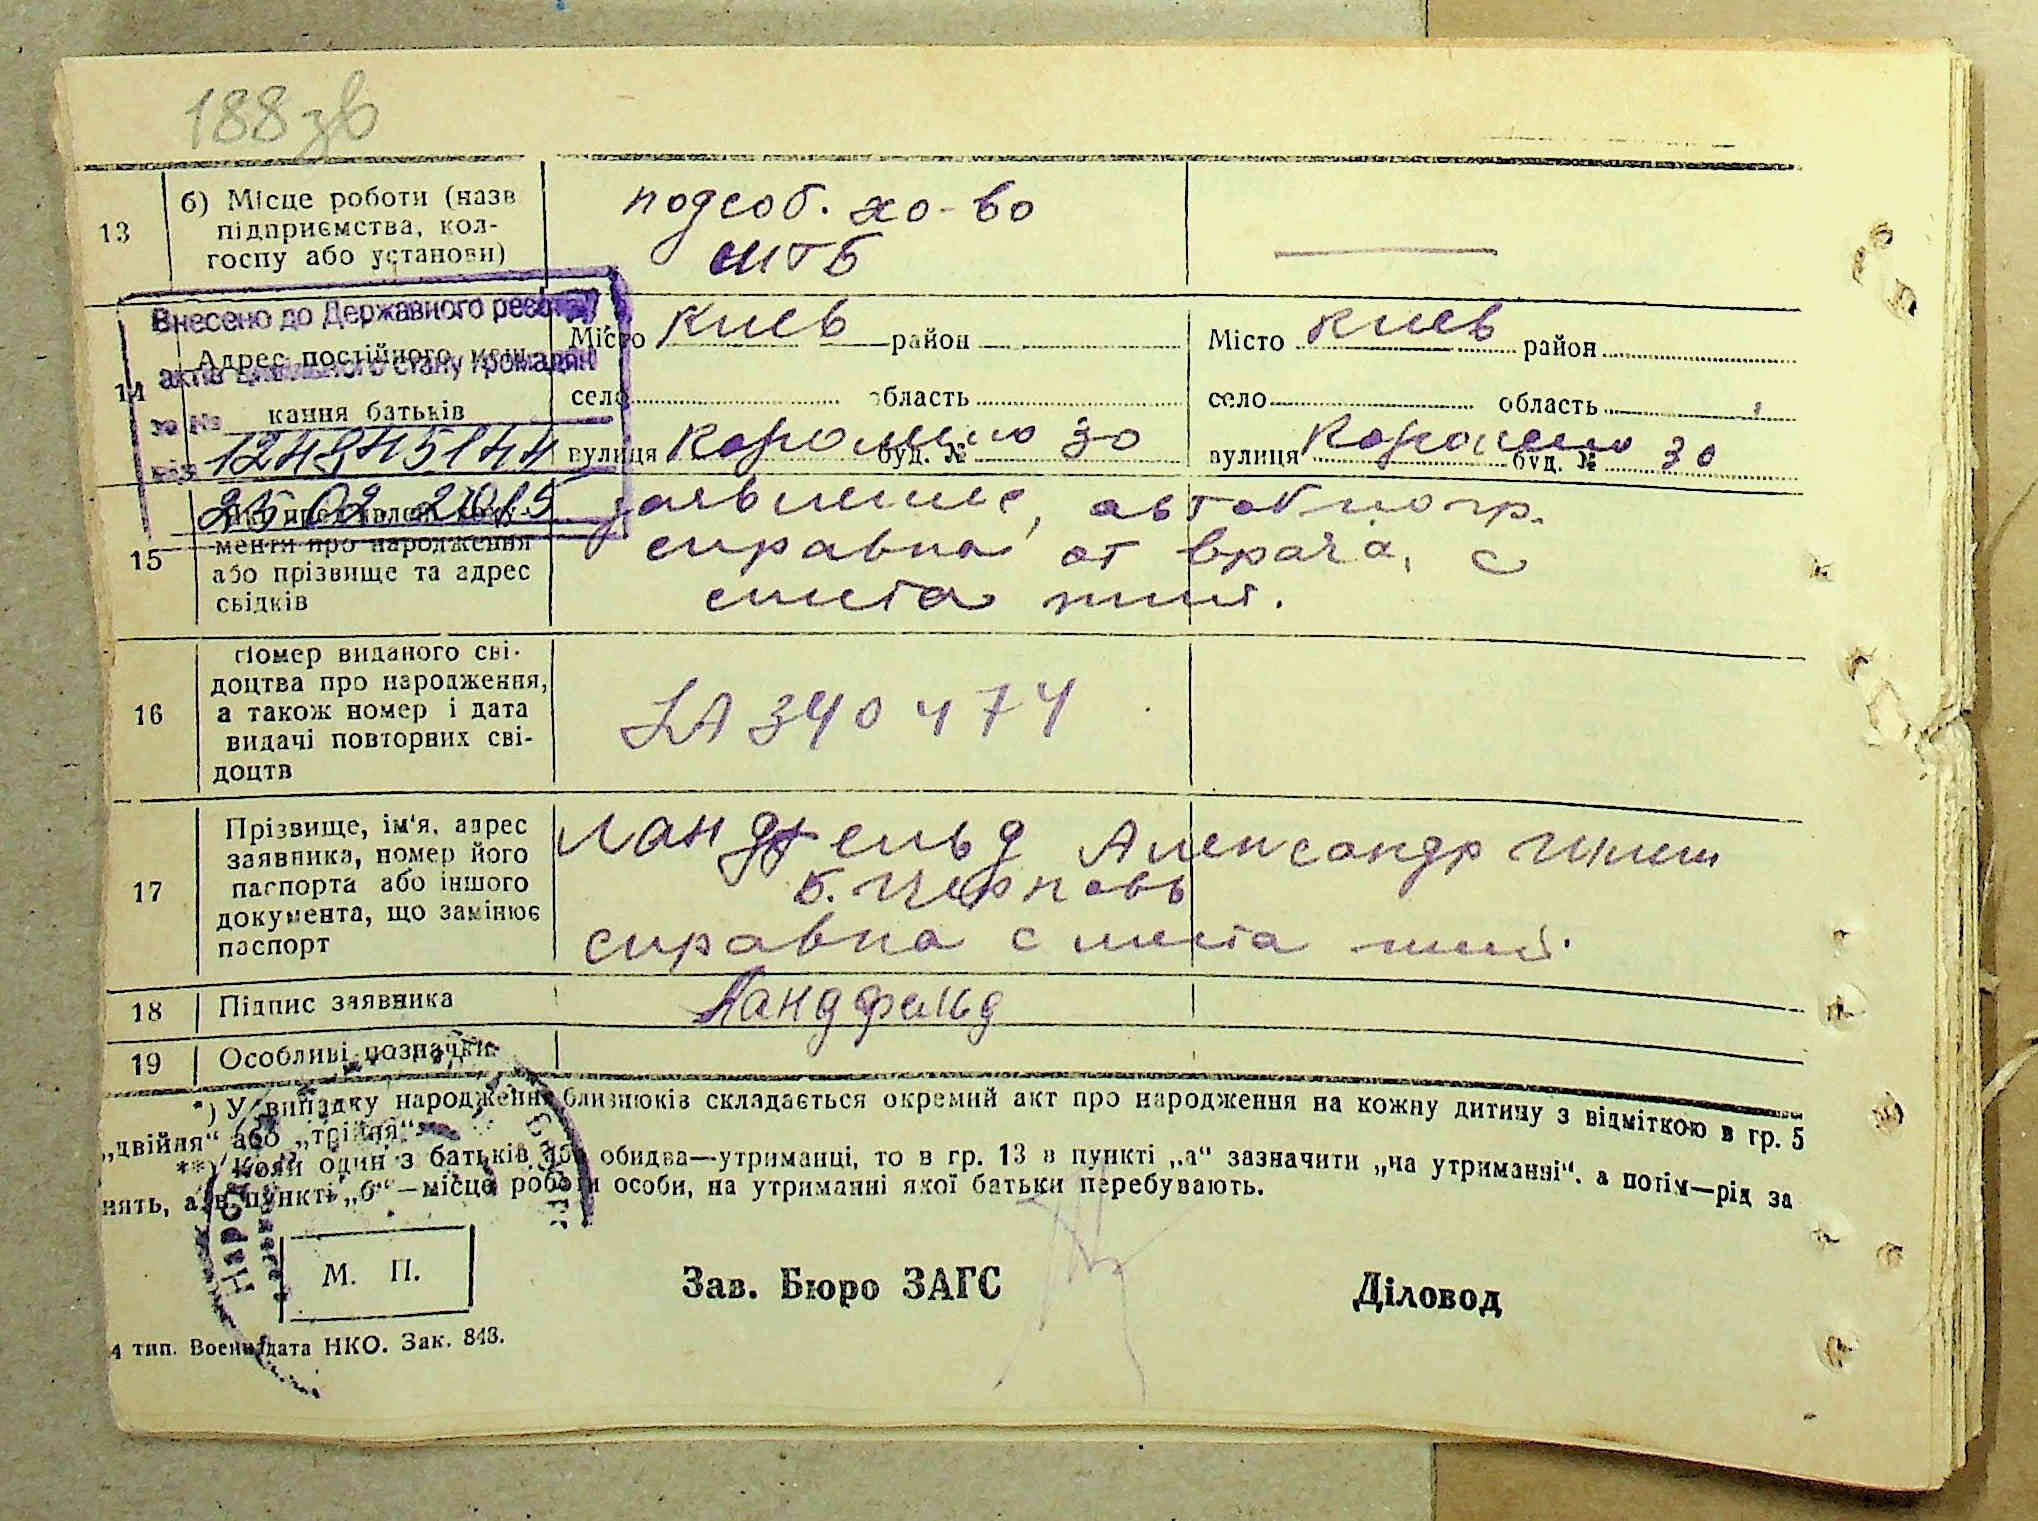 188 зв
13
б) Місце роботи (назв
підприємства, кол-
госпу або установи)
подсоб. хо-во
14
Адрес постійного меш-
кання батьків
Місто Киев район
село область
вулиця буд. № 30
Місто Киев район
село область
вулиця буд. № 30
Внесено до Державного реєстру
актів цивільного стану громадян
за №
від
25.02.2019
15
менти про народження
або прізвище та адрес
свідків
заявление, автобиогр.
справка от врача, с
места жит.
16
Номер виданого сві-
доцтва про народження,
а також номер і дата
видачі повторних сві-
доцтв
340474
17
Прізвище, ім'я, адрес
заявника, номер його
паспорта або іншого
документа, що замінює
паспорт
Ландфельд Александр
справка с места жит.
18
Підпис заявника
Ландфельд
19
Особливі позначки
*) У випадку народження близнюків складається окремий акт про народження на кожну дитину з відміткою в гр. 5
„двійня“ або „трійня“.
**) Коли один з батьків або обидва—утриманці, то в гр. 13 в пункті „а“ зазначити „на утриманні“, а потім—рід за
нять, а в пункті „б“—місце роботи особи, на утриманні якої батьки перебувають.
М. П.
Зав. Бюро ЗАГС
Діловод
4 тип. Воениздата НКО. Зак. 843.